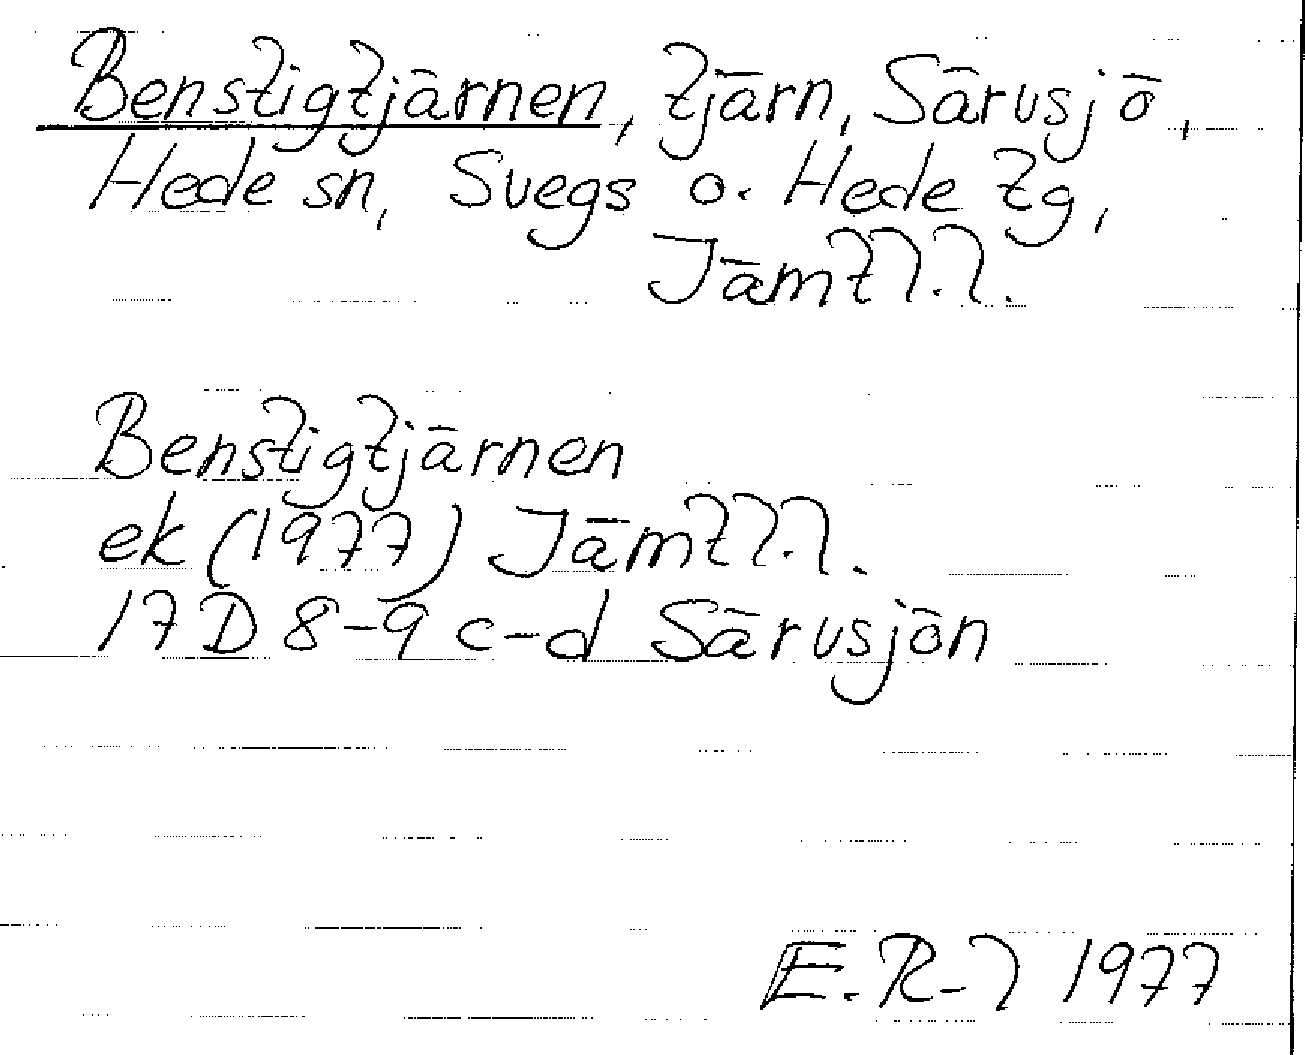 Benstigtjärnen, tjärn, Särusjö,
Hede sn, Svegs o. Hede tg,
Jämtl.l.
Benstigtjärnen
ek (1977) Jämtl.l.
17 D 8-9 c-d Särusjön
E.R-l 1977